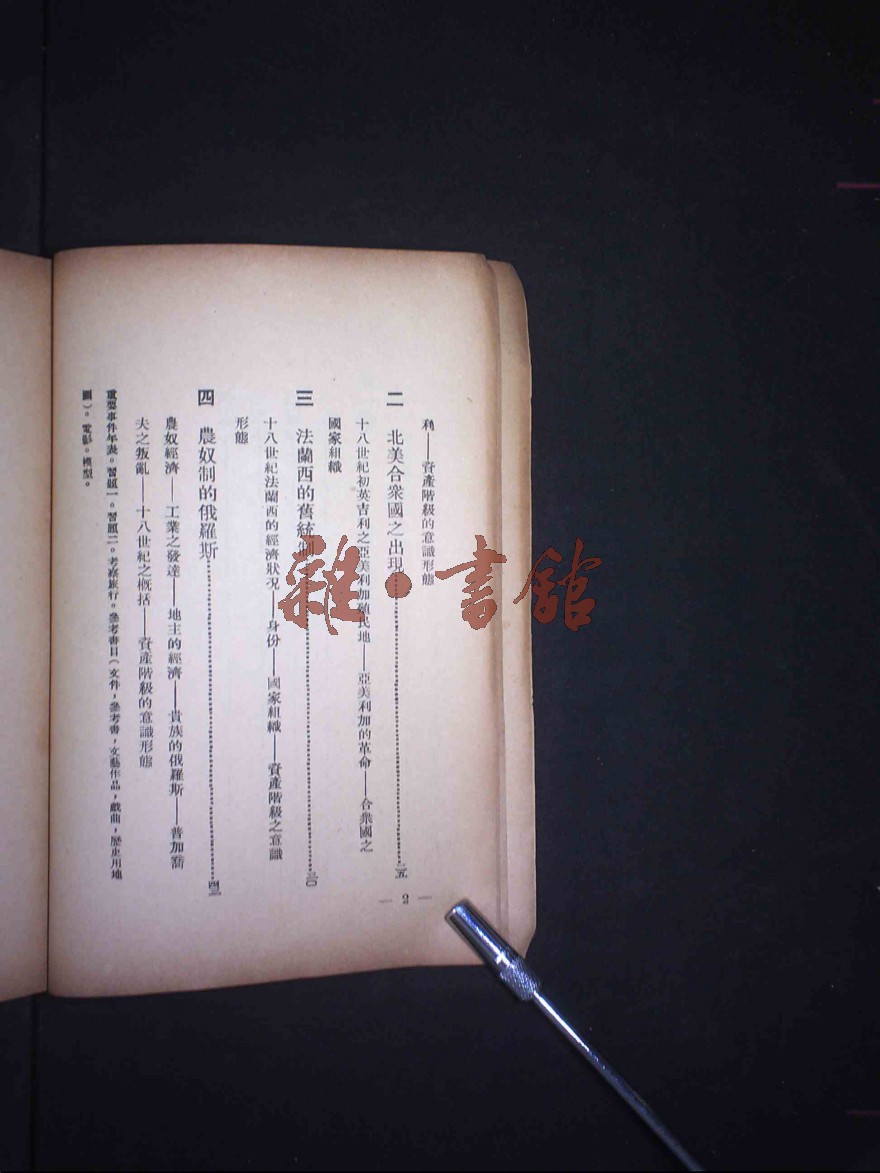 利——資產階級的意識形態
二 北美合衆國之出現……二五
十八世紀初英吉利之亞美利加殖民地——亞美利加的革命——合衆國之
國家組織
三 法蘭西的舊統制……三〇
十八世紀法蘭西的經濟狀况——身份——國家組織——資產階級之意識
形態
四 農奴制的俄羅斯……四二
農奴經濟——工業之發達——地主的經濟——貴族的俄羅斯——普加喬
夫之叛亂——十八世紀之概括——資產階級的意識形態
重要事件年表。習題一。習題二。考察旅行。參考書目（文件，參考書，文藝作品，戲曲，歷史用地
圖）。電影。模型。
— 2 —
雜·書館